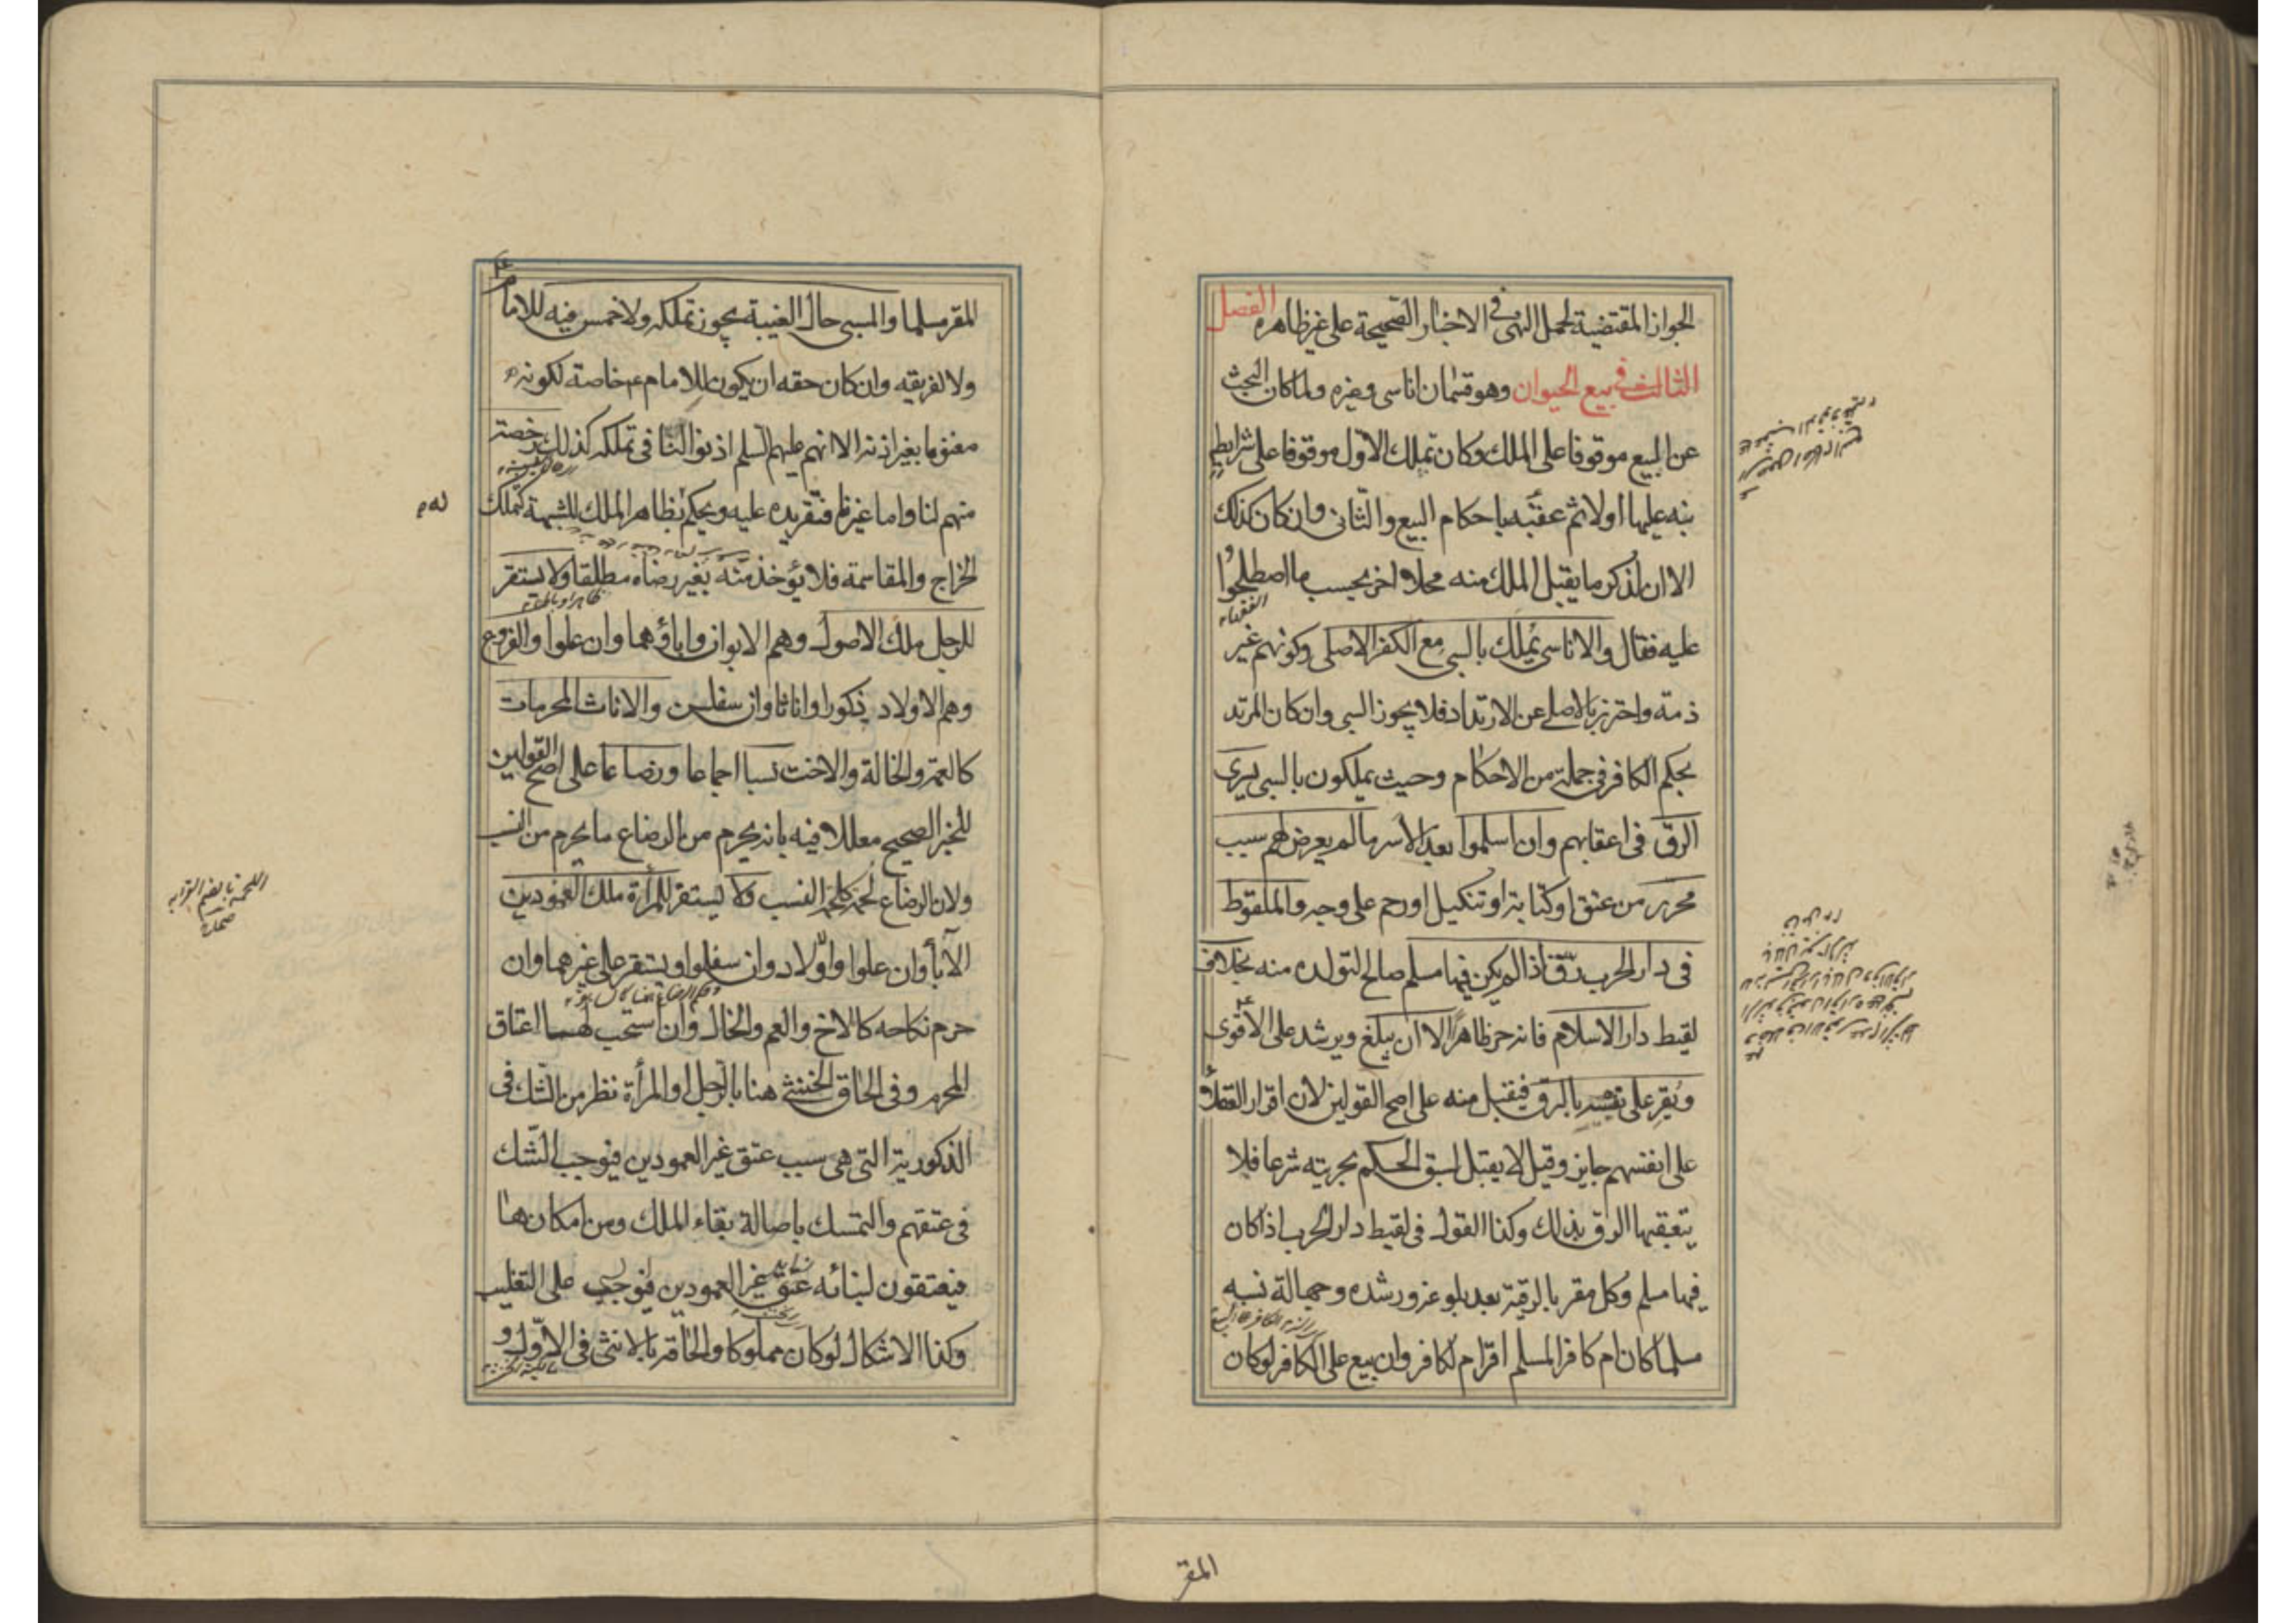 الجواز المقتضية لحمل النهى فى الاخبار الصحيحة على غير ظاهره الفصل
الثالث فى بيع الحيوان وهو قسمان اناسى وغيره ولما كان البحث
عن البيع موقوفا على الملك وكان تملك الاول موقوفا على شرايط
نبه عليها اولا ثم عقبه باحكام البيع والثانى وان كان كذلك
الا ان لذكر ما يقبل الملك منه محلا اخر بحسب ما اصطلحوا
الفقهاء
عليه فقال والاناسى يملك بالسبى مع الكفر الاصلى وكونهم غير
ذمة واحترز بالاصلى عن الارتداد فلا يجوز السبى وان كان المرتد
بحكم الكافر فى جملة من الاحكام وحيث يملكون بالسبى يسرى
الرق فى اعقابهم وان اسلموا بعد الاسر ما لم يعرض لهم سبب
محرر من عتق او كتابة او تنكيل او رحم على وجه والملقوط
فى دار الحرب رق اذا لم يكن فيها مسلم صالح لتولده منه بخلاف
لقيط دار الاسلام فانه حر ظاهرا الا ان يبلغ ويرشد على الاقوى
ويقر على نفسه بالرق فيقبل منه على اصح القولين لان اقرار العقلاء
على انفسهم جايز وقيل لا يقبل لسبق الحكم بحريته شرعا فلا
يتعقبها الرق بذلك وكذا القول فى لقيط دار الحرب اذا كان
فيها مسلم وكل مقر بالرقية بعد بلوغه ورشده وجهالة نسبه
مسلما كان ام كافر المسلم اقر ام لكافر وان بيع على الكافر لو كان
المقر
المقر مسلما والمسبى حال الغيبة يجوز تملكه ولا خمس فيه للامام
ولا لفريقه وان كان حقه ان يكون للامام ع خاصة لكونه
مغنوما بغير اذنه الا انهم عليهم السلم اذنوا لنا فى تملكه كذلك رخصة
منهم لنا واما غيرنا فتقر يده عليه ويحكم بظاهر الملك للشبهة كتملك
له م
الخراج والمقاسمة فلا يؤخذ منه بغير رضاه مطلقا ولا يستقر
للرجل ملك الاصول وهم الابوان واباؤهما وان علوا والفروع
وهم الاولاد ذكورا واناثا وان سفلن والاناث المحرمات
كالعمة والخالة والاخت نسبا اجماعا ورضاعا على اصح القولين
للخبر الصحيح معللا فيه بانه يحرم من الرضاع ما يحرم من النسب
ولان الرضاع لحمة كلحمة النسب ولا يستقر للمرأة ملك العمودين
اللحمة بالضم القرابه
صحاح
الآباء وان علوا والاولاد وان سفلوا ويستقر على غيرهما وان
حرم نكاحه كالاخ والعم والخال وان استحب لهسا اعتاق
المحرم وفى الحاق الخنثى هنا بالرجل او المرأة نظر من الشك فى
الذكورية التى هى سبب عتق غير العمودين فيوجب الشك
فى عتقهم والتمسك باصالة بقاء الملك ومن امكانها
فيعتقون لبنائه على التغليب
وكذا الاشكال لو كان مملوكا والحاقه بالانثى فى الاول و